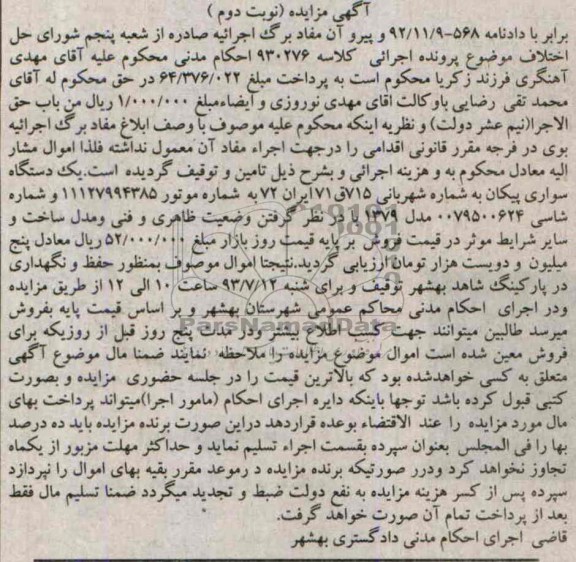 آگهی مزایده (نوبت دوم )
برابر با دادنامه ۵۶۸-۹۲/۱۱/۹ و پیرو آن مفاد برگ اجرائیه صادره از شعبه پنجم شورای حل
اختلاف موضوع پرونده اجرائی کلاسه ۹۳۰۲۷۶ احکام مدنی محکوم علیه آقای مهدی
آهنگری فرزند زکریا محکوم است به پرداخت مبلغ ۶۴/۳۷۶/۰۲۲ در حق محکوم له آقای
محمد تقی رضایی باوکالت اقای مهدی نوروزی و ایضاءمبلغ ۱/۰۰۰/۰۰۰ ریال من باب حق
الاجرا(نیم عشر دولت) و نظریه اینکه محکوم علیه موصوف با وصف ابلاغ مفاد برگ اجرائیه
بوی در فرجه مقرر قانونی اقدامی را درجهت اجراء مفاد آن معمول نداشته فلذا اموال مشار
الیه معادل محکوم به و هزینه اجرائی و بشرح ذیل تامین و توقیف گردیده است.یک دستگاه
سواری پیکان به شماره شهربانی ۷۱۵ق۷۱ ایران ۷۲ به شماره موتور ۱۱۱۲۷۹۹۴۳۸۵ و شماره
شاسی ۰۰۷۹۵۰۰۶۲۴ مدل ۱۳۷۹ با در نظر گرفتن وضعیت ظاهری و فنی ومدل ساخت و
سایر شرایط موثر در قیمت فروش بر پایه قیمت روز بازار مبلغ ۵۲/۰۰۰/۰۰۰ ریال معادل پنج
میلیون و دویست هزار تومان ارزیابی گردید.نتیجتا اموال موصوف بمنظور حفظ و نگهداری
در پارکینگ شاهد بهشهر توقیف و برای شنبه ۹۳/۷/۱۲ ساعت ۱۰ الی ۱۲ از طریق مزایده
ودر اجرای احکام مدنی محاکم عمومی شهرستان بهشهر و بر اساس قیمت پایه بفروش
میرسد طالبین میتوانند جهت کسب اطلاع بیشتر ودر مدت پنج روز قبل از روزیکه برای
فروش معین شده است اموال موضوع مزایده را ملاحظه نمایند ضمنا مال موضوع آگهی
متعلق به کسی خواهدشده بود که بالاترین قیمت را در جلسه حضوری مزایده و بصورت
کتبی قبول کرده باشد توجها باینکه دایره اجرای احکام (مامور اجرا)میتواند پرداخت بهای
مال مورد مزایده را عند الاقتضاء بوعده قراردهد دراین صورت برنده مزایده باید ده درصد
بها را فی المجلس بعنوان سپرده بقسمت اجراء تسلیم نماید و حداکثر مهلت مزبور از یکماه
تجاوز نخواهد کرد ودرر صورتیکه برنده مزایده د رموعد مقرر بقیه بهای اموال را نپردازد
سپرده پس از کسر هزینه مزایده به نفع دولت ضبط و تجدید میگردد ضمنا تسلیم مال فقط
بعد از پرداخت تمام آن صورت خواهد گرفت.
قاضی اجرای احکام مدنی دادگستری بهشهر
ParsNamadData